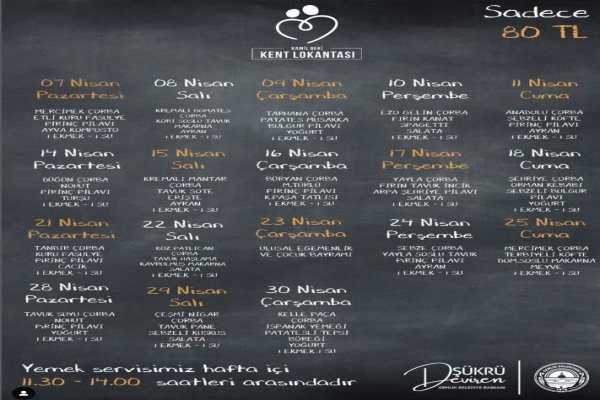 Sadece
80 TL
KAMİL BEKİ
KENT LOKANTASI
07 Nisan
Pazartesi
MERCİMEK ÇORBA
ETLİ KURU FASULYE
PİRİNÇ PİLAVI
AYVA KOMPOSTO
1 EKMEK - 1 SU
08 Nisan
Salı
KREMALI DOMATES
ÇORBA
KÖRİ SOSLU TAVUK
MAKARNA
AYRAN
1 EKMEK - 1 SU
09 Nisan
Çarşamba
TARHANA ÇORBA
PATATES MUSAKKA
BULGUR PİLAVI
YOĞURT
1 EKMEK - 1 SU
10 Nisan
Perşembe
EZO GELİN ÇORBA
FIRIN KANAT
SPAGETTİ
SALATA
1 EKMEK - 1 SU
11 Nisan
Cuma
ANADOLU ÇORBA
SEBZELİ KÖFTE
PİRİNÇ PİLAVI
AYRAN
1 EKMEK - 1 SU
14 Nisan
Pazartesi
DÜĞÜN ÇORBA
NOHUT
PİRİNÇ PİLAVI
TURŞU
1 EKMEK - 1 SU
15 Nisan
Salı
KREMALI MANTAR
ÇORBA
TAVUK SOTE
ERİŞTE
AYRAN
1 EKMEK - 1 SU
16 Nisan
Çarşamba
BÜRYAN ÇORBA
M.TÜRLÜ
PİRİNÇ PİLAVI
K.PAŞA TATLISI
1 EKMEK - 1 SU
17 Nisan
Perşembe
YAYLA ÇORBA
FIRIN TAVUK İNCİK
ARPA ŞEHRİYE PİLAVI
SALATA
1 EKMEK - 1 SU
18 Nisan
Cuma
ŞEHRİYE ÇORBA
ORMAN KEBABI
SEBZELİ BULGUR
PİLAVI
YOĞURT
1 EKMEK - 1 SU
21 Nisan
Pazartesi
TANDIR ÇORBA
KURU FASULYE
PİRİNÇ PİLAVI
CACIK
1 EKMEK - 1 SU
22 Nisan
Salı
KÖZ PATLICAN
ÇORBA
TAVUK HAŞLAMA
KAVRULMUŞ MAKARNA
SALATA
1 EKMEK - 1 SU
23 Nisan
Çarşamba
ULUSAL EGEMENLİK
VE ÇOCUK BAYRAMI
24 Nisan
Perşembe
SEBZE ÇORBA
YAYLA SOSLU TAVUK
PİRİNÇ PİLAVI
AYRAN
1 EKMEK - 1 SU
25 Nisan
Cuma
MERCİMEK ÇORBA
TERBİYELİ KÖFTE
DOM.SOSLU MAKARNA
MEYVE
1 EKMEK - 1 SU
28 Nisan
Pazartesi
TAVUK SUYU ÇORBA
NOHUT
PİRİNÇ PİLAVI
YOĞURT
1 EKMEK - 1 SU
29 Nisan
Salı
ÇEŞMİ NİGAR
ÇORBA
TAVUK PANE
SEBZELİ KUSKUS
SALATA
1 EKMEK - 1 SU
30 Nisan
Çarşamba
KELLE PAÇA
ÇORBA
ISPANAK YEMEĞİ
PATATESLİ TEPSİ
BÖREĞİ
YOĞURT
1 EKMEK - 1 SU
Yemek servisimiz hafta içi
11.30 - 14.00 saatleri arasındadır
ŞÜKRÜ
Deviren
GEMLİK BELEDİYE BAŞKANI